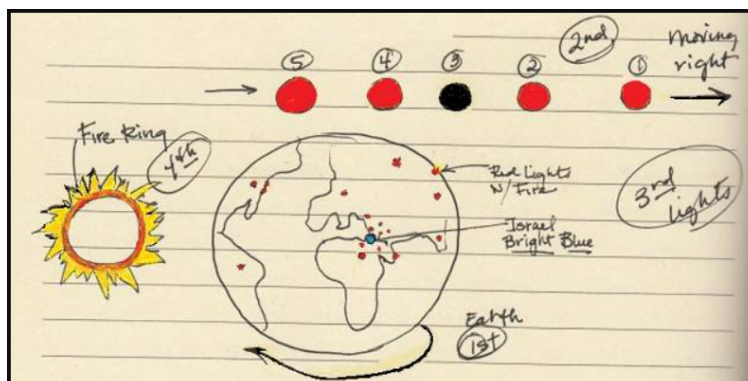 2nd
moving
right
5
4
3
2
1
Fire Ring
4th
Red Lights
W/Fire
3rd
Lights
Israel
Bright Blue
Earth
1st